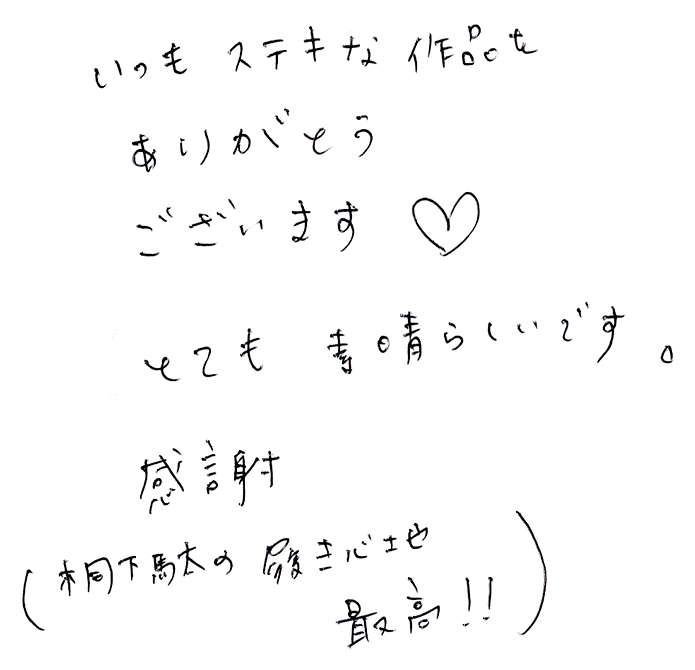 いつもステキな作品を
ありがとう
ございます♡
とても素晴らしいです。
感謝
(桐下駄の履き心地
最高!!)